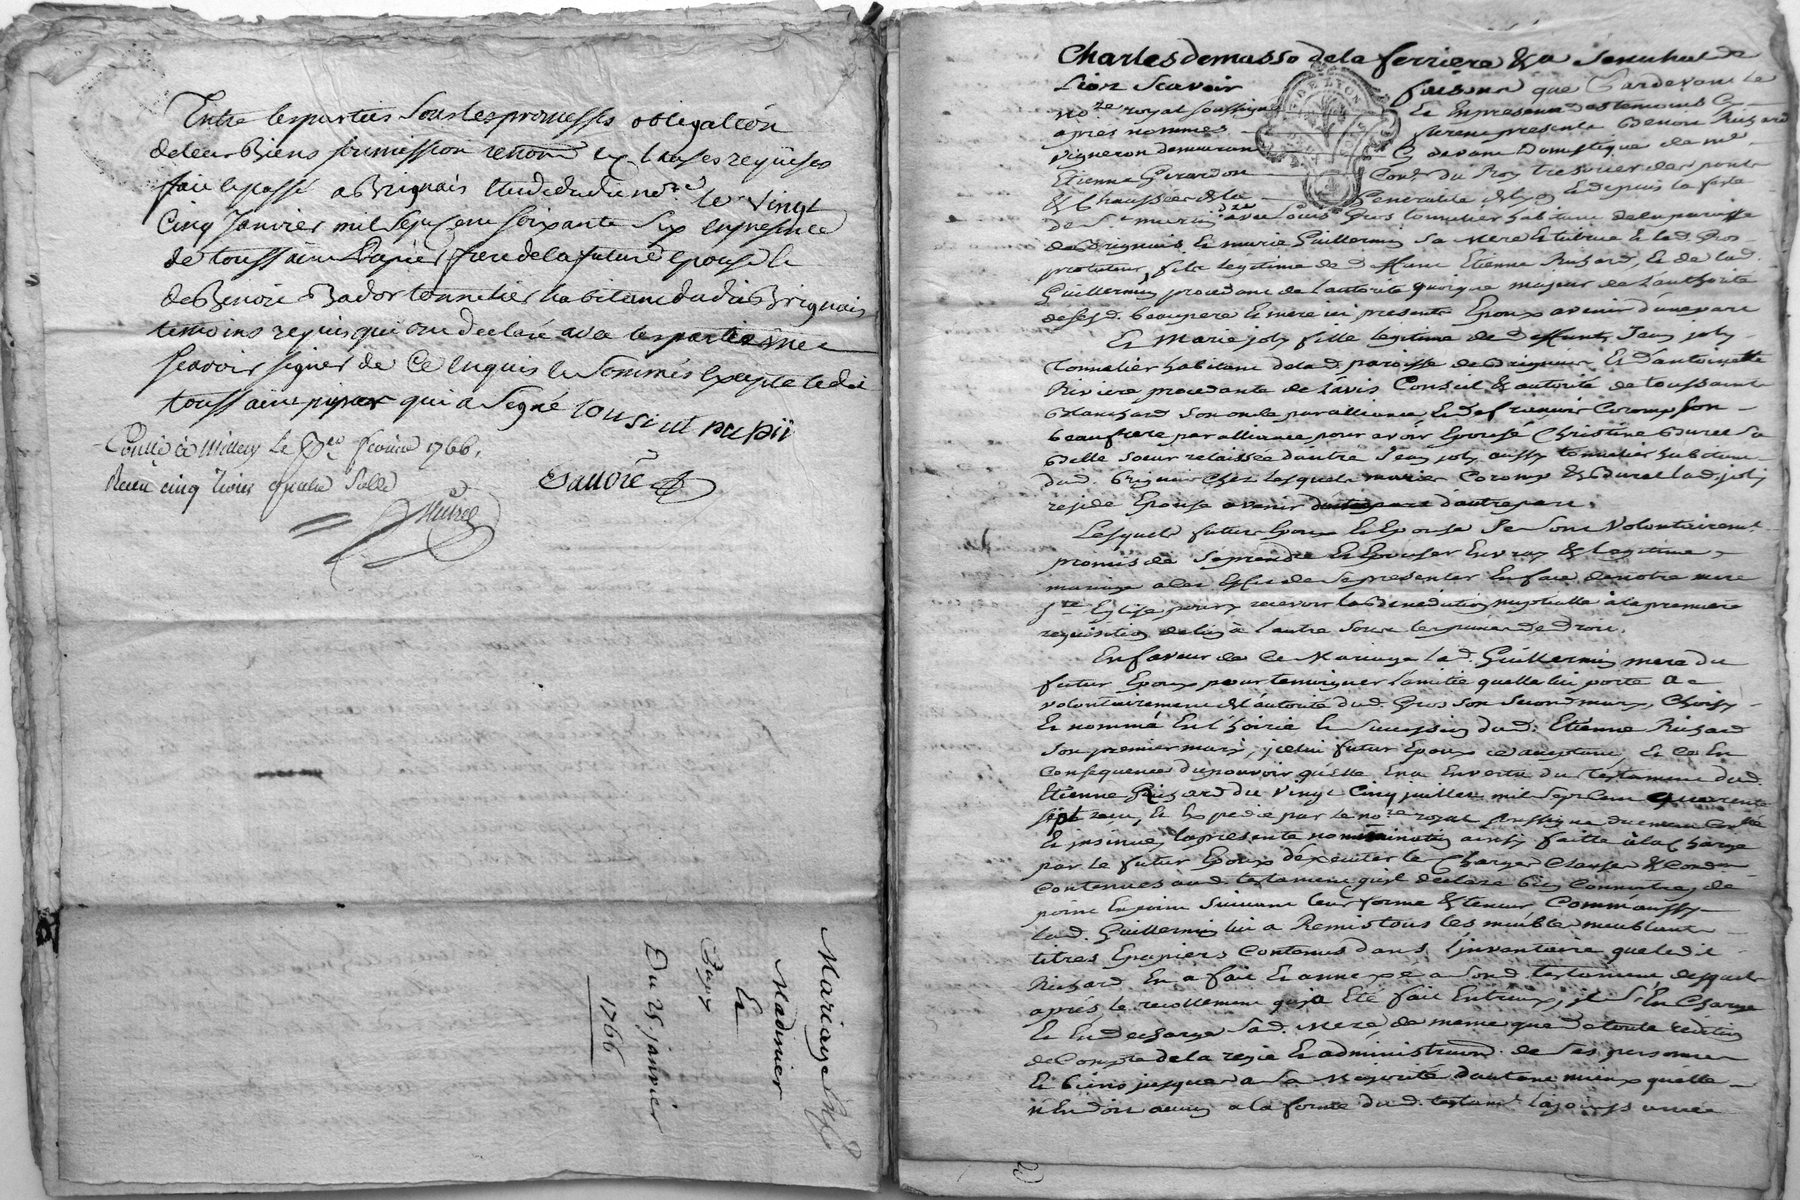 Entre lesparties Souslespromesses obligation
deleur Biens soumission renon ex Clauses requises
fait lepassé a Brignais Etude dudit no.re le vingt
Cinq Janvier mil Sept Cent soixante Six enpresence
de toussaint Papier frere delafuture Epouse Et
deBenoit Bador tonnelier habitant dudit Brignais
temoins requis qui ont declaré avec lesparties ne
Scavoir signer de Ce Enquis et Sommés Excepté ledit
toussaint qui a Signé tousaint papii
Millery Le fevrier 1766.
Receu cinq livres
Mariage Entre
Madinier
Et
Papy
Du 25 janvier
1766
DE LYON
Charles demasso dela ferriere &a Senechal de
Lion Scavoir faisons que Pardevant le
no.re royal soussigné Et Enpresence des temoins Cy
apres nommés furent presents Benoit Richard
vigneron demeurant Cy devant Domestique de mr
Etienne Girardon Con.er du Roy tresorier des ponts
& Chaussées de la Generalité de Lyon Et depuis la feste
de St martin avec Louis Gros tonnelier habitant delaparoisse
de Brignais Et marie Guillermin Sa mere Et tutrice Et led. Gros
protuteur, fils legitime de deffunt Etienne Richard, Et de lad.
Guillermin procedant de l'autorité quoique majeur de l'authorité
desesd. beaupere Et mere ici presents Epoux avenir d'unepart
Et Marie joly fille legitime de deffunt Jean joly
tonnelier habitant delad. paroisse de Brignais Et d'antoinette
Riviere procedante de l'avis Conseil & autorité de toussaint
Blanchard Son oncle par alliance Et de françois Coromp Son
beaufrere par alliance pour avoir Epousé Christine Burel Sa
Belle Soeur relaissée d'autre Jean joly aussy tonnelier habitant
dud. Brignais Chez lesquels mariés Coromp & Burel lad. joly
reside Epouse avenir d'autrepart.
Lesquels futurs Epoux Et Epouse Se Sont Volontairement
promis de Seprendre Et Epouser En vray & legitime
mariage a cet Effet de Sepresenter En face denotre mere
ste Eglise pour y recevoir la Benediction nuptialle à lapremiere
requisition de l'un à l'autre Sous les peines de Droit.
En faveur de Ce Mariage lad. Guillermin mere du
futur Epoux pour temoigner l'amitié quelle lui porte a
volontairement de l'autorité dud. Gros Son Second mary, Choisy
Et nommé En l'hoirie Et Succession dud. Etienne Richard
Son premier mary, icelui futur Epoux ce acceptant, Et Ce En
Consequence du pouvoir quelle En a En vertu du testament dud.
Etienne Richard du vingt Cinq juillet mil Sept Cent quarente
sept recu, Et Expedié par le no.re royal soussigné
Et insinué, lapresente nomination ainsy faitte àla Charge
par le futur Epoux d'exécuter les Charges Clauses & Cond.
Contenues aud. testament qu'il declare bien Connoitre, de
point En point Suivant leur forme & teneur Comm'aussy
lad. Guillermin lui a Remis tous les meubles meublants
titres Epapiers Contenus dans l'inventaire queledit
Richard En a fait Et annexé a Sond. testament desquels
aprés le recollement qui a Eté fait Entreux, il S'En Charge
Et En decharge Sad. mere de meme que de toute reddition
de Compte de la regie Et administration de Ses personne
Et biens jusques a Sa Majorité d'autant mieux qu'elle
n'En doit aucun a la forme dud. testamt.